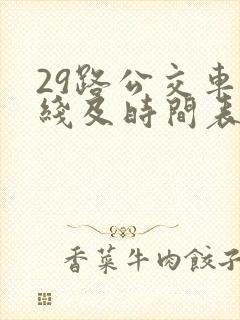 29路公交車
綫及時間表
香菜牛肉餃子